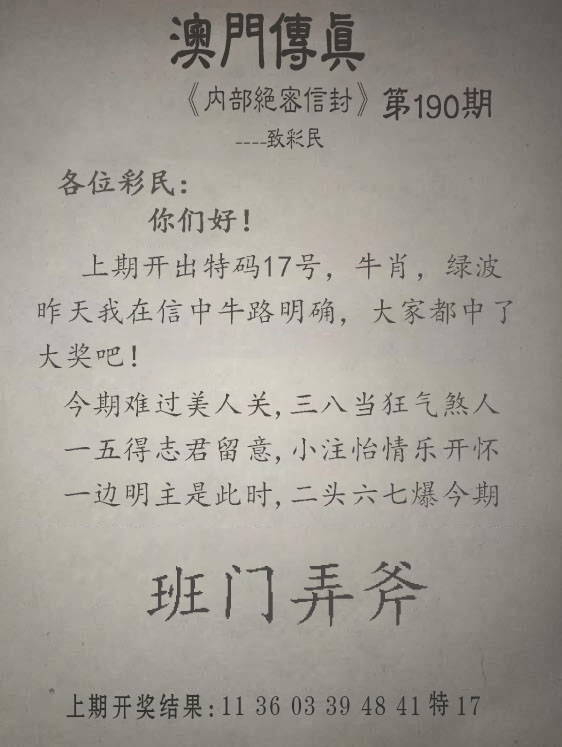 澳門傳眞
《内部絕密信封》第190期
----致彩民
各位彩民:
你们好!
上期开出特码17号，牛肖，绿波
昨天我在信中牛路明确，大家都中了
大奖吧!
今期难过美人关,三八当狂气煞人
一五得志君留意,小注怡情乐开怀
一边明主是此时,二头六七爆今期
班门弄斧
上期开奖结果:11 36 03 39 48 41 特 17